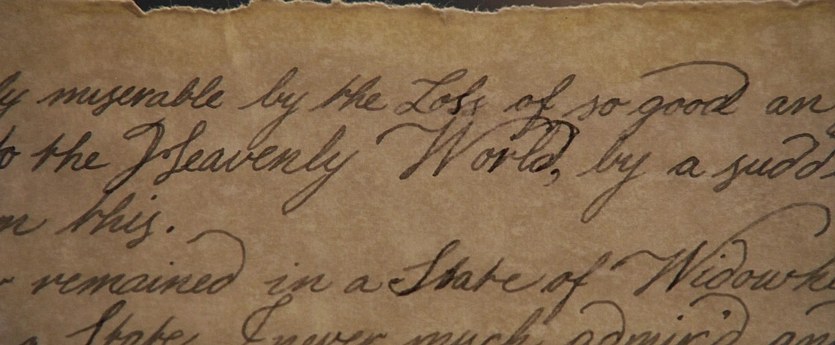 ly miserable by the Loss of so good an
to the Heavenly World, by a sudd
m this.
r remained in a State of Widowh
a State I never much admir'd an